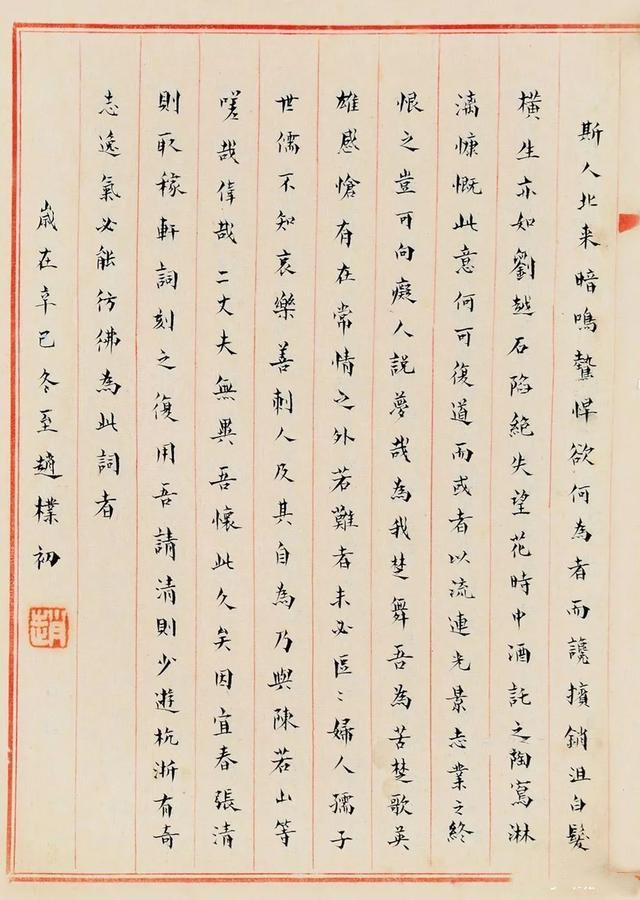 斯人北来暗鳴鷙悍欲何為者而讒擯銷沮白髮
橫生亦如劉越石陷絕失望花時中酒託之陶寫淋
漓慷慨此意何可復道而或者以流連光景志業之終
恨之豈可向癡人說夢哉為我楚舞吾為若楚歌英
雄感愴有在常情之外若難者未必區〻婦人孺子
世儒不知哀樂善刺人及其自為乃與陳若山等
嗟哉偉哉二丈夫無異吾懷此久矣因宜春張清
則取稼軒詞刻之復用吾請清則少遊杭浙有奇
志逸氣必能彷彿為此詞者
歲在辛巳冬至趙樸初
趙